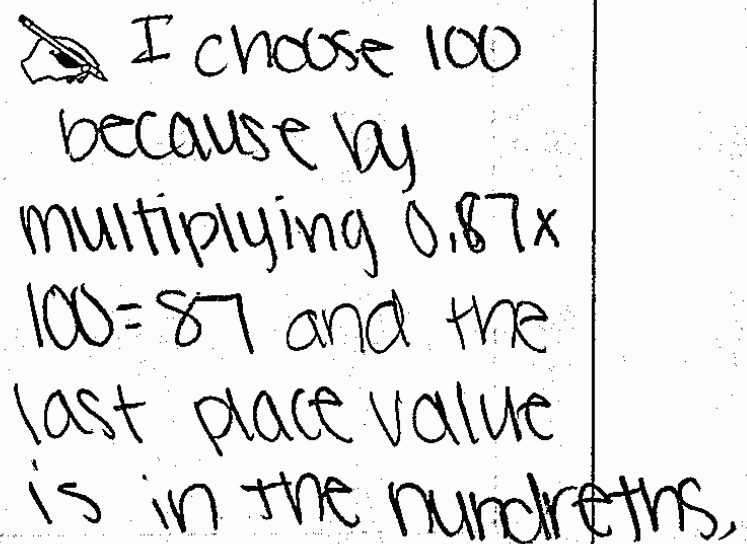 I choose 100
because by
multiplying 0.87x
100=87 and the
last place value
is in the hundreths.